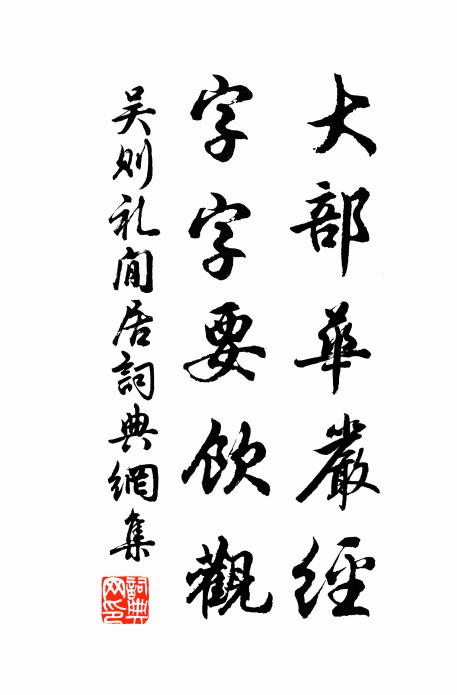 大部華嚴經
字字要飲觀
吴则礼閒居詞典網集
詞典網印